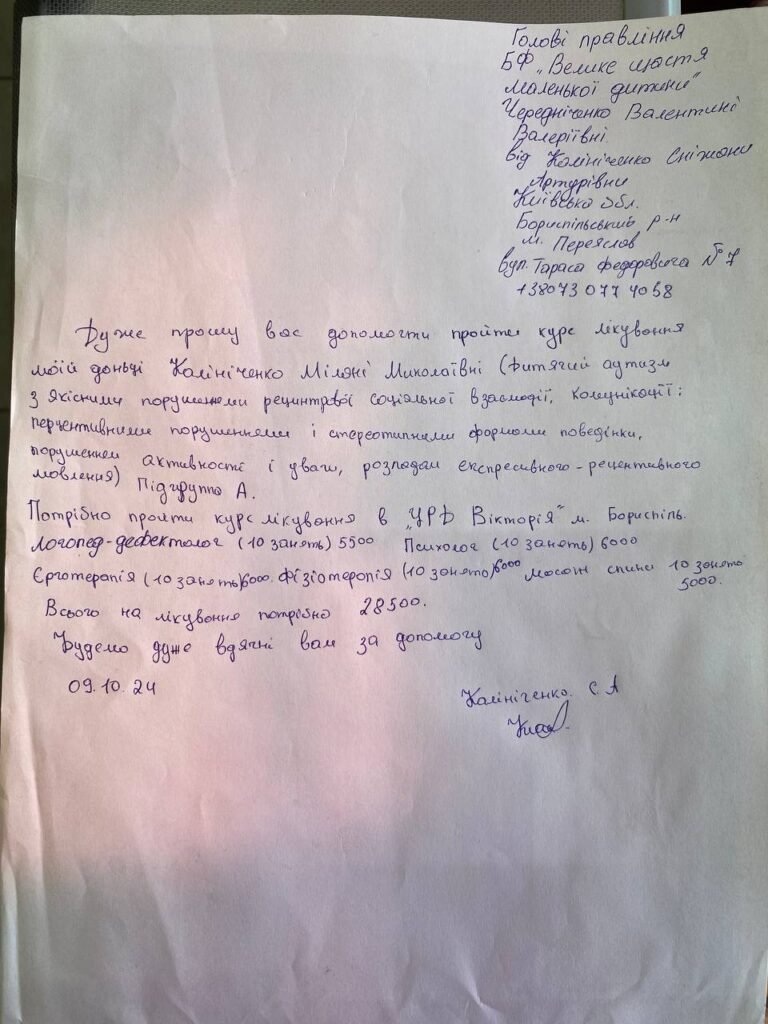 Голові правління
БФ „Велике щастя
маленької дитини"
Чередніченко Валентині
Валеріївні
від Калініченко Сніжани
Артурівни
Київська обл.
Бориспільський р-н
м. Переяслав
вул. Тараса Федоровича №7
+38073 077 4058
Дуже прошу вас допомогти пройти курс лікування
моїй доньці Калініченко Міляні Миколаївні (Дитячий аутизм
з якісними порушеннями соціальної взаємодії, комунікації;
перцептивними порушеннями і стереотипними формами поведінки,
порушенням активності і уваги, розладам експресивного-рецептивного
мовлення) Підгруппа А.
Потрібно пройти курс лікування в „ЦРД Вікторія" м. Бориспіль.
Логопед-дефектолог (10 занять) 5500 Психолог (10 занять) 6000
Єрготерапія (10 занять) 6000. Фізіотерапія (10 занять) 6000 масаж спини 10 занять
5000.
Всього на лікування потрібно 28500.
Будемо дуже вдячні вам за допомогу
09.10.24
Калініченко. С. А